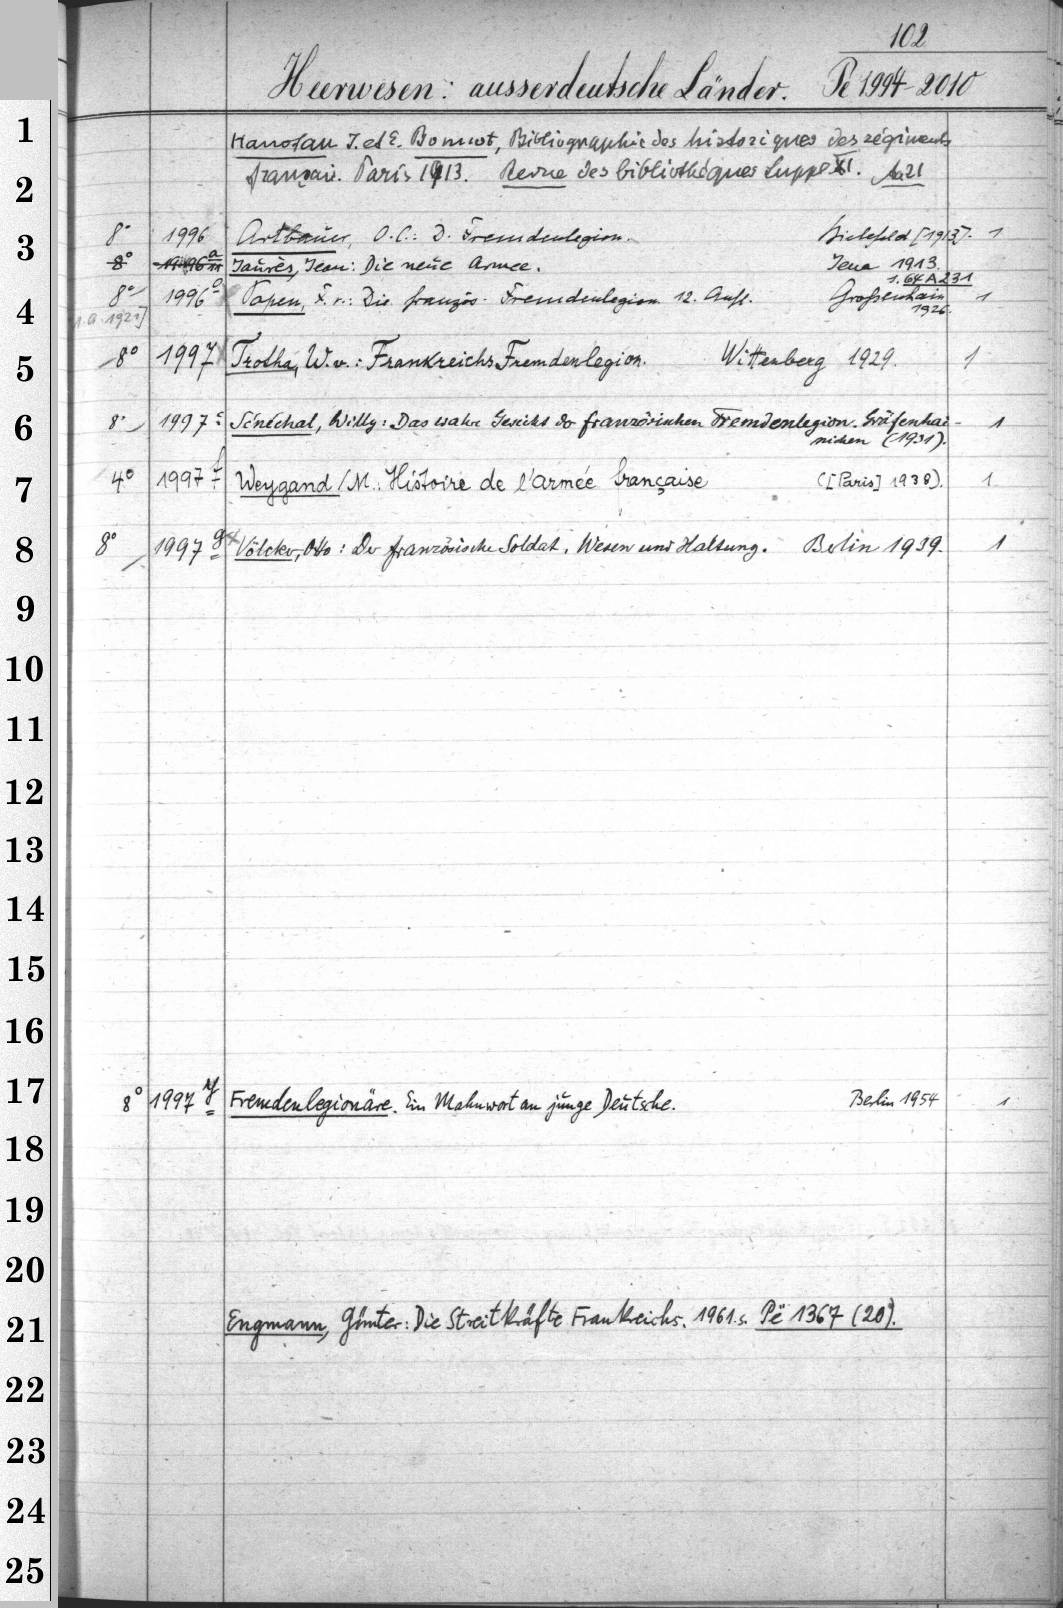 102
Heerwesen: ausserdeutsche Länder. Pe 1994-2010
1
Hanotau J. et E. Bonnot, Bibliographie des historiques des régiments
2
français. Paris 1913. Revue des bibliothèques Suppl XI. Aa21
3
8° 1996 Artbauer, O.C.: D. Fremdenlegion. Bielefeld [1913]. 1
8° 1996 a Jaurès, Jean: Die neue Armee. Jena 1913.
1. 64 A 231
4
8° 1996 a Papen, F. v.: Die französ. Fremdenlegion 12. Aufl. Großenhain 1
1926.
1.a. 1921]
5
8° 1997 Trotha, W. v.: Frankreichs Fremdenlegion. Wittenberg 1929. 1
6
8° 1997 c Sénéchal, Willy: Das wahre Gesicht der französischen Fremdenlegion. Gräfenhai- 1
nichen (1931).
7
4° 1997 f Weygand / M.: Histoire de l'armée française ([Paris] 1938). 1
8
8° 1997 g Völcker, Otto: Der französische Soldat. Wesen und Haltung. Berlin 1939. 1
9
10
11
12
13
14
15
16
17
8° 1997 y Fremdenlegionäre. Ein Mahnwort an junge Deutsche. Berlin 1954 1
18
19
20
21
Engmann, Günter: Die Streitkräfte Frankreichs. 1961. s. Pë 1367 (20).
22
23
24
25